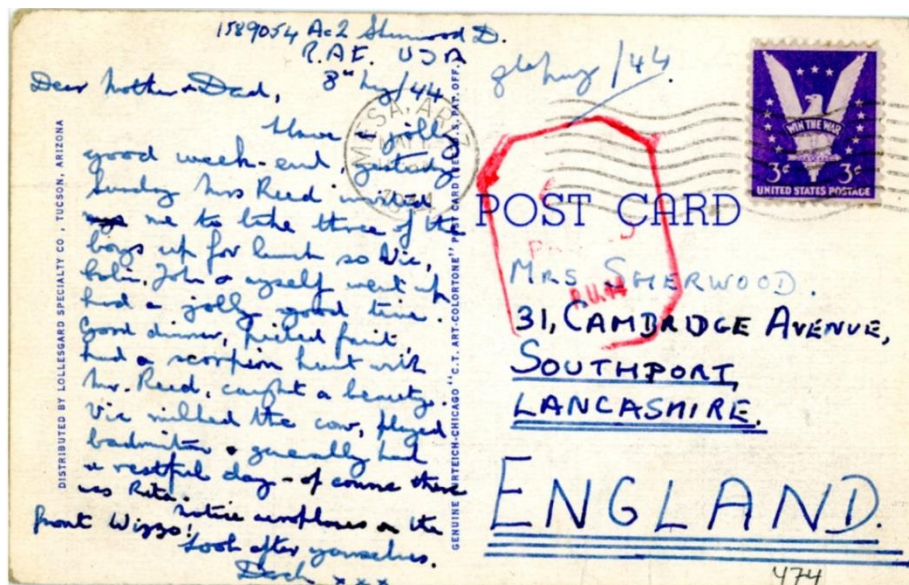 1589054 Ac2 Sherwood D.
R.A.F. USA
8th May/44
Dear Mother & Dad,
Have a jolly
good week-end, yesterday
Sunday Mrs Reed invited
me to take three of the
boys up for lunch so Vic,
Colin, John & myself went up
had a jolly good time.
Good dinner, picked fruit,
had a scorpion hunt with
Mr. Reed, caught a beauty.
Vic milked the cow, played
badminton & generally had
a restful day - of course there
was Rita.
Notice aeroplanes on the
front Wizzo!
Look after yourselves.
x x x
DISTRIBUTED BY LOLLESGARD SPECIALTY CO., TUCSON, ARIZONA
MESA, ARIZ
GENUINE CURTEICH-CHICAGO "C.T. ART-COLORTONE" POST CARD (REG. U.S. PAT. OFF.)
/44.
WIN THE WAR
3¢ 3¢
UNITED STATES POSTAGE
POST CARD
MRS SHERWOOD.
31, CAMBRIDGE AVENUE,
SOUTHPORT,
LANCASHIRE.
ENGLAND.
474